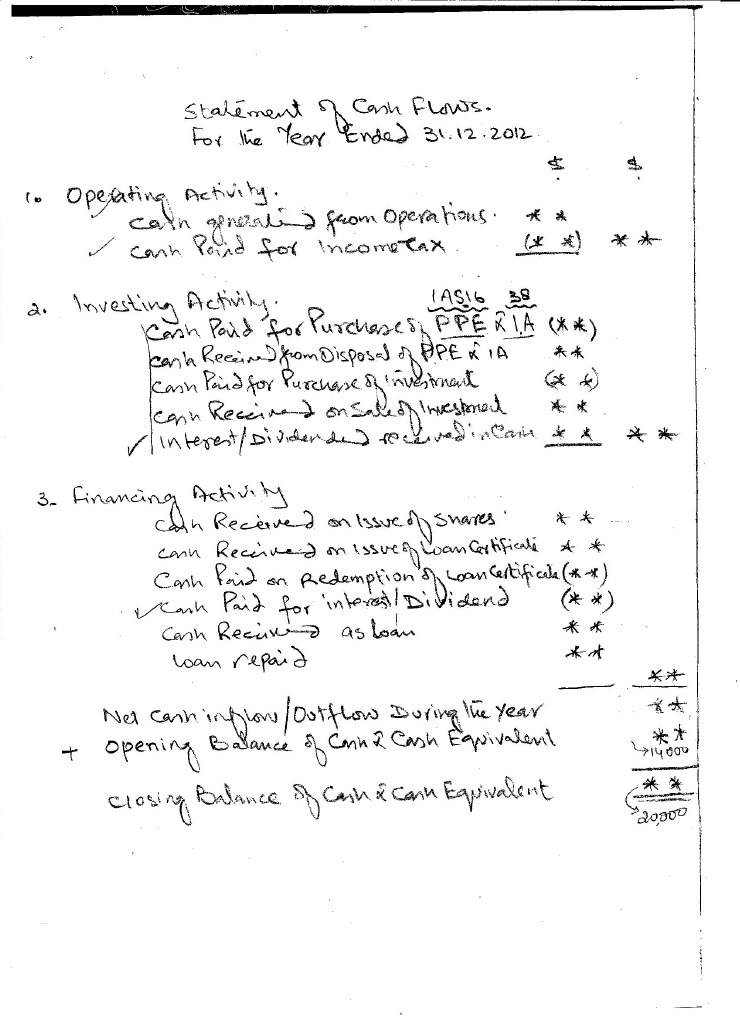 Statement of Cash Flows.
For the Year Ended 31.12.2012
$ $
1. Operating Activity.
Cash generated from Operations. * *
✓ Cash Paid for Income Tax (* *) * *
2. Investing Activity. IAS16 38
Cash Paid for Purchase of PPE & IA (* *)
Cash Received from Disposal of PPE & IA * *
Cash Paid for Purchase of investment (* *)
Cash Received on Sale of Investment * *
✓ Interest/Dividend received in Cash * * * *
3. Financing Activity
Cash Received on Issue of Shares * *
Cash Received on Issue of Loan Certificate * *
Cash Paid on Redemption of Loan Certificate (* *)
✓ Cash Paid for interest/Dividend (* *)
Cash Received as loan * *
Loan repaid * *
* *
Net Cash inflow/Outflow During the year * *
+ Opening Balance of Cash & Cash Equivalent * *
→14000
Closing Balance of Cash & Cash Equivalent * *
→20,000